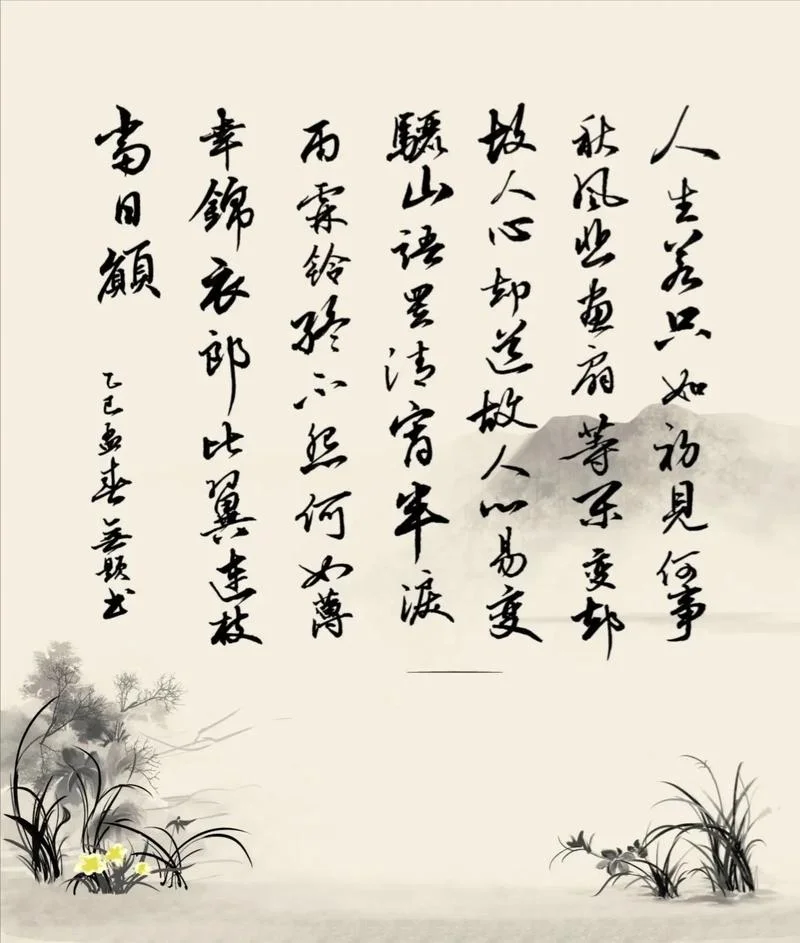 人生若只如初見何事
秋風悲畫扇等閑变却
故人心却道故人心易变
驪山語罷清宵半淚
雨霖鈴終不怨何如薄
幸錦衣郎比翼連枝
當日願
乙巳孟春無題书